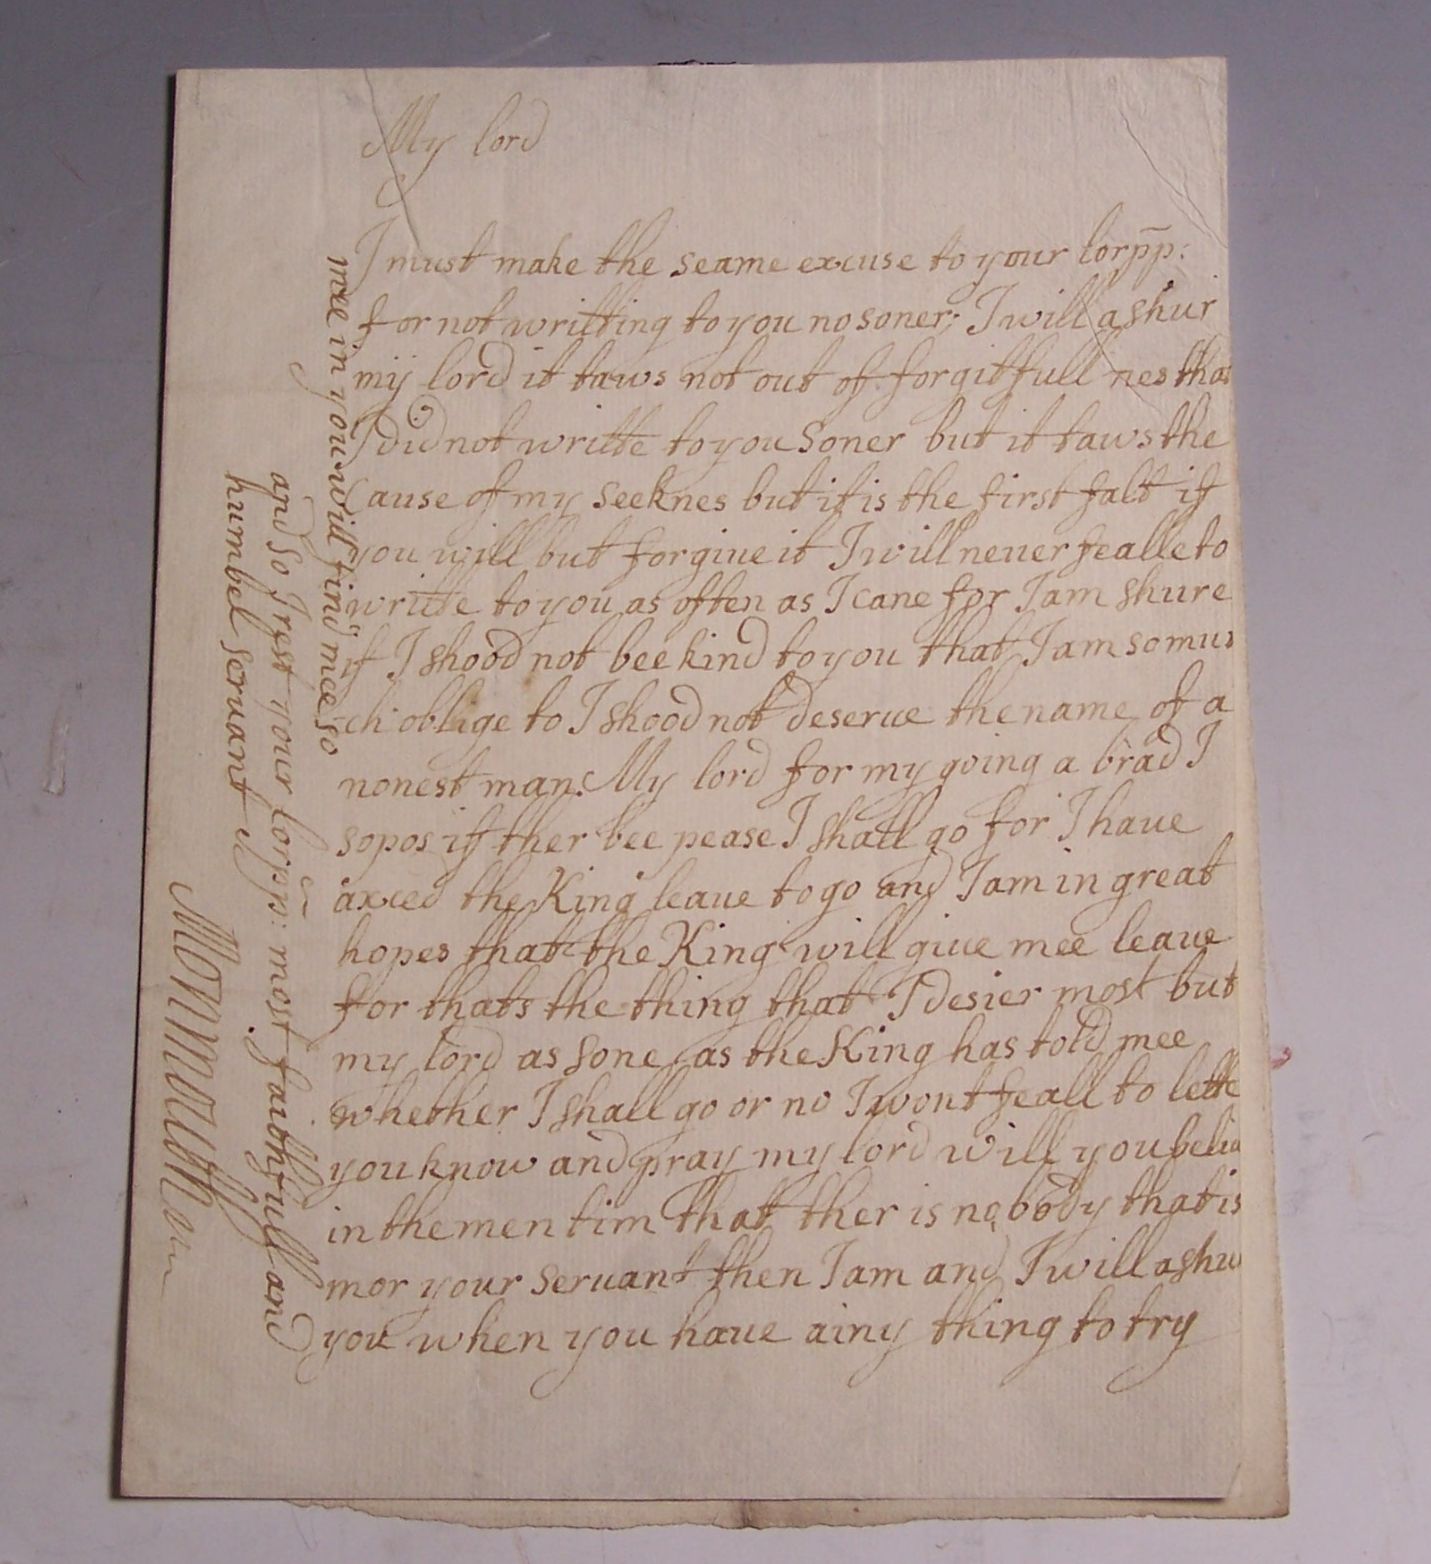 My lord
I must make the seame excuse to your lorpp:
for not writting to you no soner; I will ashur
my lord it taws not out of forgitfull nes that
I did not writte to you soner but it taws the
cause of my seeknes but if is the first falt if
you will but forgiue it I will neuer fealle to
writte to you as often as I cane for I am shure
if I shood not bee kind to you that I am so mu
-ch oblige to I shood not deserue the name of a
nonest man. My lord for my going a brad I
sopos if ther bee pease I shall go for I haue
axced the King leaue to go and I am in great
hopes that the King will giue mee leaue
for thats the thing that I desier most but
my lord as sone as the King has told mee
whether I shall go or no I wont feall to lette
you know and pray my lord will you belie
in the men tim that ther is no body that is
mor your seruant then I am and I will ashu
you when you haue ainy thing to try
mee in you will find mee so
and so I rest your lorpp: most faithfull and
humbel seruant
Monmouth